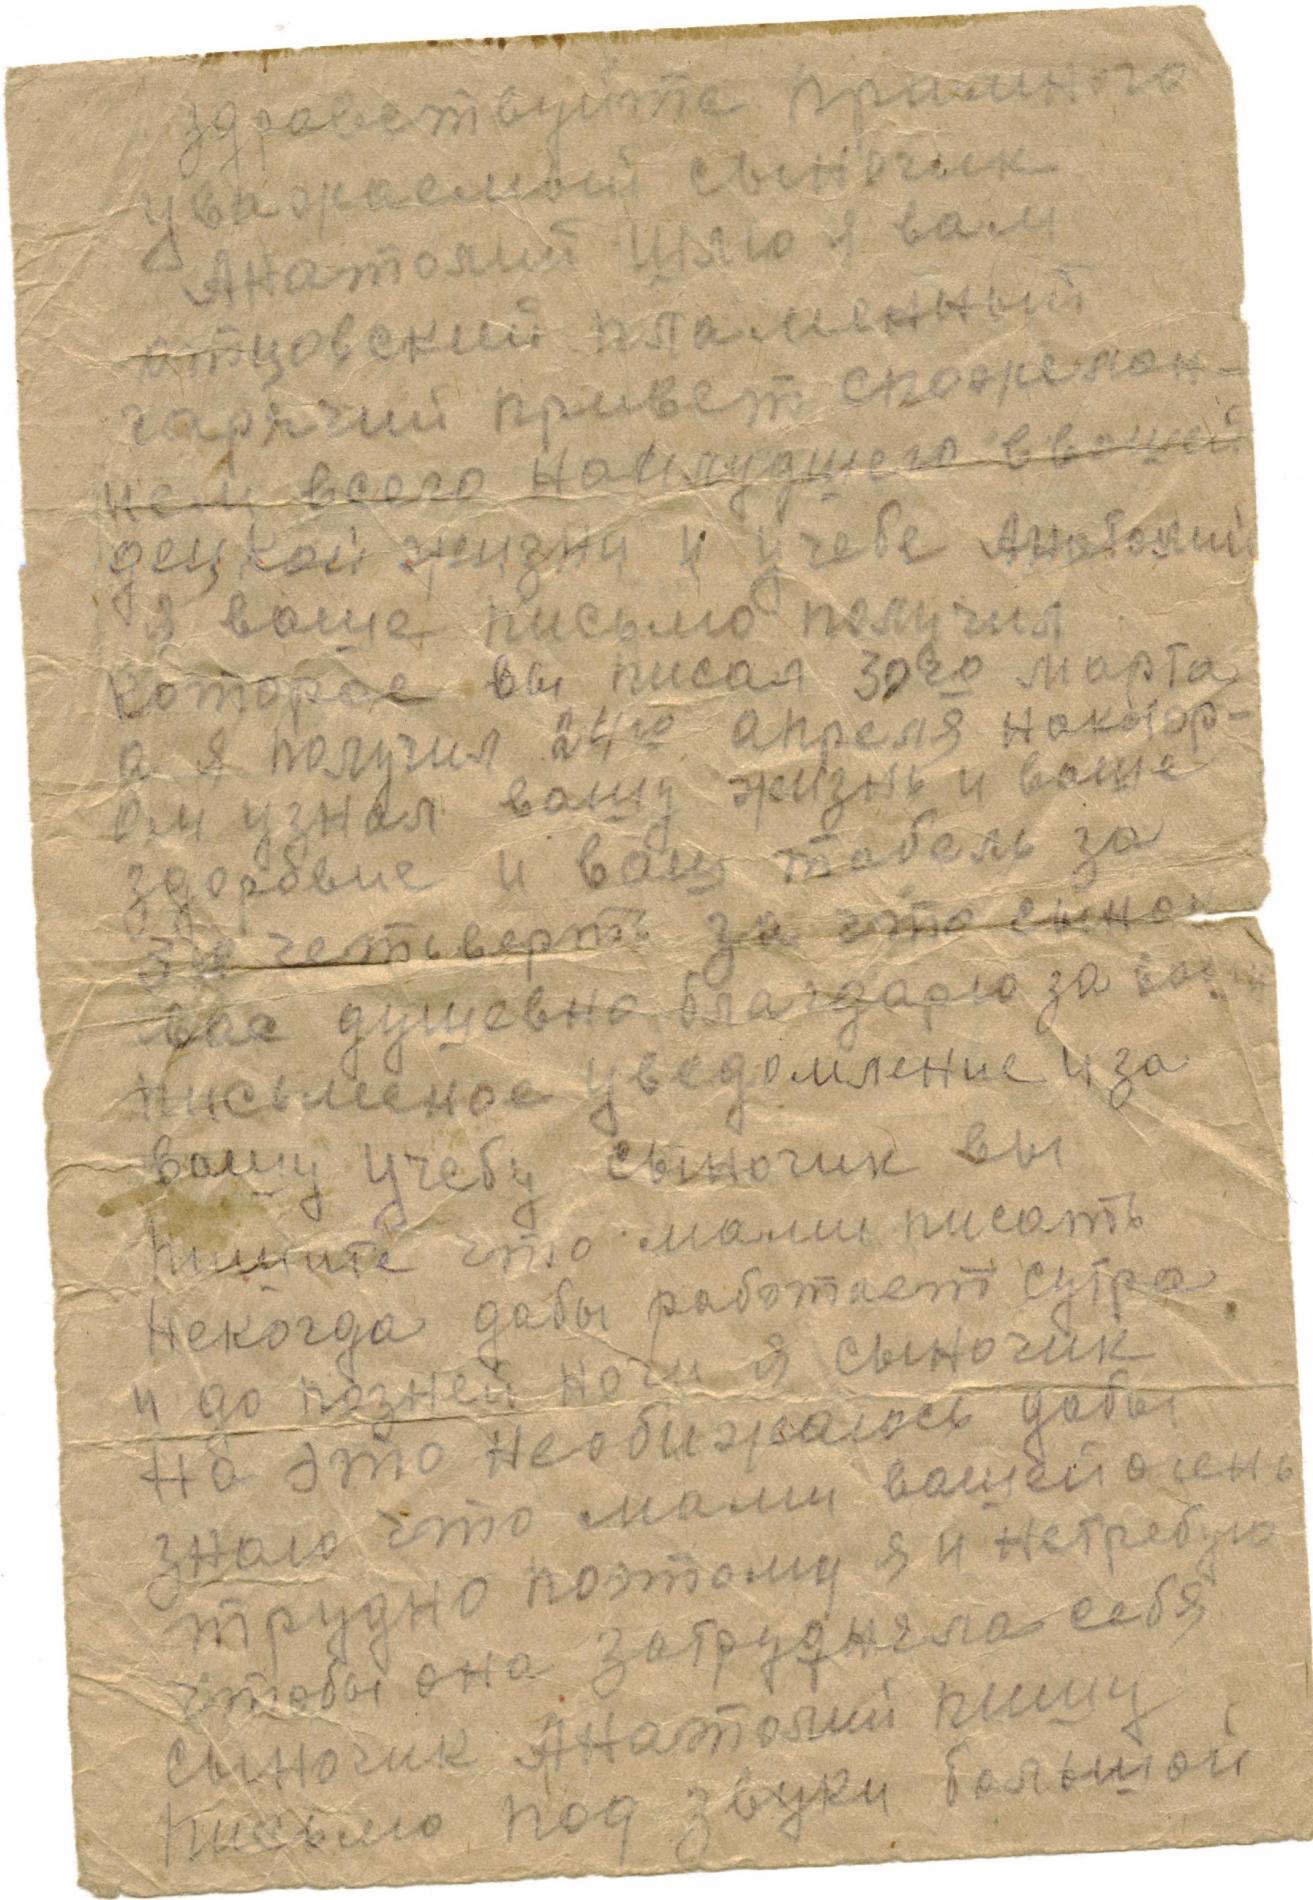 здравствуйте примного
уважаемый сыночик
Анатолий шлю я вам
отцовский пламенный
гарячий привет спожелан-
нем всего наилудшего в вашей
децкой жизни и учебе Анатолий
я ваше письмо получил
которое вы писал 30го марта
а я получил 24го апреля накотор-
ом узнал вашу жизнь и ваше
здоровие и ваш табель за
четьверть за что сынок
вас душевно благдарю за ваш
письменое уведомление и за
вашу учебу сыночик вы
пишите что мами писать
некогда дабы работает сутра
и до позней ночи я сыночик
на это необижаюсь дабы
знаю что мами вашей очень
трудно поэтому я и нетребую
чтобы она затрудняла себя
сыночик Анатолий пишу
письмо под звуки большой